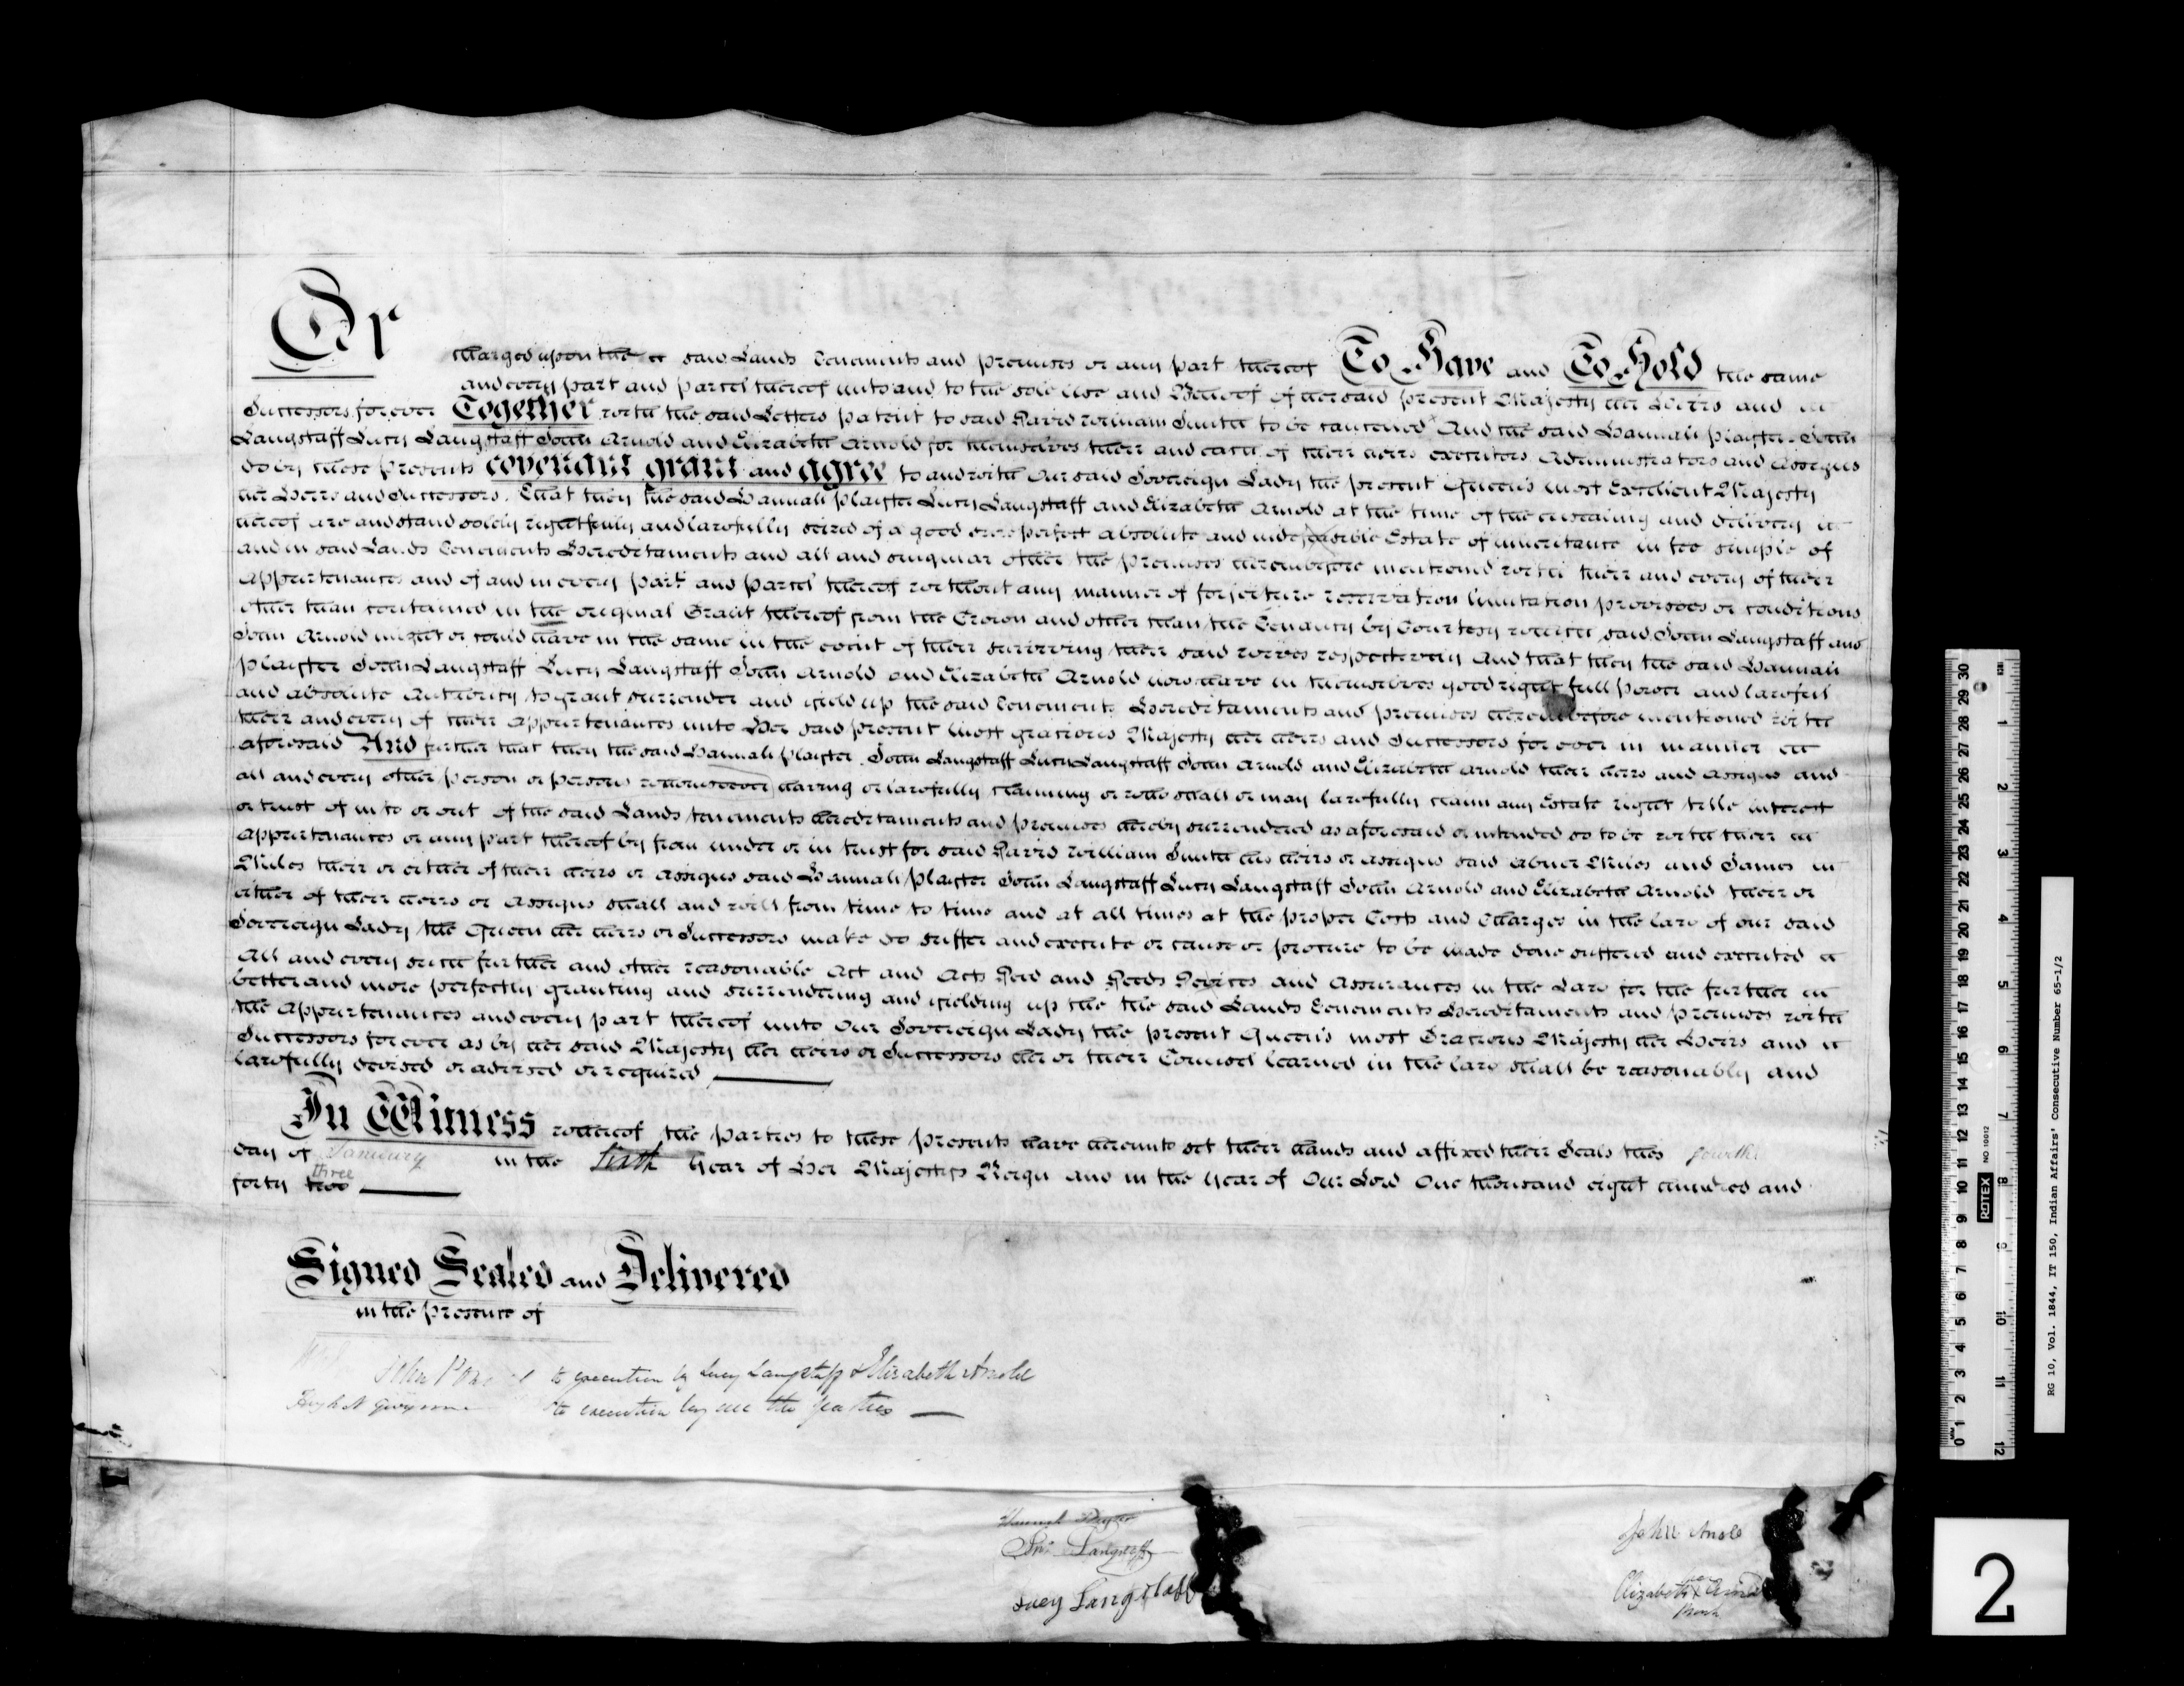 Or charged upon the said Lands Tenements and premises or any part thereof To Have and To Hold the same
and every part and parcel thereof unto and to the sole use and Behoof of her said present Majesty her Heirs and
Successors for ever Together with the said Letters patent to said David William Smith to be cancelled And the said Hannah Playter John
Langstaff Lucy Langstaff John Arnold and Elizabeth Arnold for themselves their and each of their heirs executors Administrators and Assigns
do by these presents covenant grant and agree to and with Our said Sovereign Lady the present Queen's most Excellent Majesty
her Heirs and Successors. That they the said Hannah Playter Lucy Langstaff and Elizabeth Arnold at the time of the ensealing and delivery
hereof are and stand solely rightfully and lawfully seized of a good sure perfect absolute and indefeasible Estate of inheritance in fee simple of
and in said Lands Tenements Hereditaments and all and singular other the premises hereinbefore mentioned with their and every of their
Appurtenances and of and in every part and parcel thereof without any manner of forfeiture reservation limitation provisoes or conditions
other than contained in the original Grant thereof from the Crown and other than the Tenancy by Courtesy which said John Langstaff and
John Arnold might or could have in the same in the event of their surviving their said wives respectively And that they the said Hannah
Playter John Langstaff Lucy Langstaff John Arnold and Elizabeth Arnold now have in themselves good right full power and lawful
and absolute Authority to grant surrender and yield up the said Tenements Hereditaments and premises hereinbefore mentioned with
their and every of their Appurtenances unto Her said present most gracious Majesty her heirs and Successors for ever in manner
aforesaid And further that they the said Hannah Playter John Langstaff Lucy Langstaff John Arnold and Elizabeth Arnold their heirs and assigns and
all and every other person or persons whomsoever having or lawfully claiming or who shall or may lawfully claim any Estate right title interest
or trust of in to or out of the said Lands tenements hereditaments and premises hereby surrendered as aforesaid or intended so to be with their
appurtenances or any part thereof by from under or in trust for said David William Smith his heirs or assigns said Abner Miles and James
Miles their or either of their heirs or assigns said Hannah Playter John Langstaff Lucy Langstaff John Arnold and Elizabeth Arnold their or
either of their heirs or assigns shall and will from time to time and at all times at the proper Costs and Charges in the law of our said
Sovereign Lady the Queen her heirs or Successors make do suffer and execute or cause or procure to be made done suffered and executed
All and every such further and other reasonable Act and Acts Deed and Deeds Devices and Assurances in the Law for the further
better and more perfectly granting and surrendering and yielding up the the said Lands Tenements Hereditaments and premises with
the Appurtenances and every part thereof unto Our Sovereign Lady the present Queen's most Gracious Majesty her Heirs and
Successors for ever as by her said Majesty her heirs or Successors her or their Counsel learned in the law shall be reasonably and
lawfully devised or advised or required
In Witness whereof the parties to these presents have hereunto set their hands and affixed their Seals this fourth
day of January in the Sixth Year of Her Majesty's Reign and in the year of Our Lord One thousand eight hundred and
forty two three
Signed Sealed and Delivered
in the presence of
John to execution by Lucy Langstaff & Elizabeth Arnold
Hugh N Gwynne to execution by all the parties
Hannah Playter
Jno Langstaff
Lucy Langstaff
John Arnold
Elizabeth X Arnold
Mark
RG 10, Vol. 1844, IT 150, Indian Affairs' Consecutive Number 65-1/2
ROTEX NO 10012
2